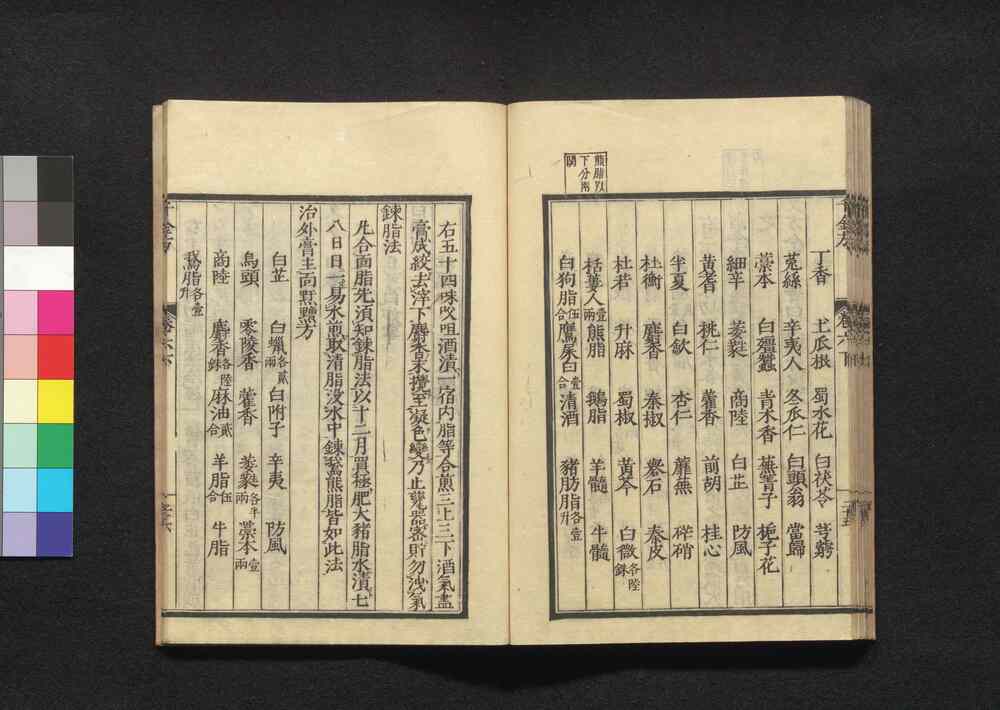 熊脂以
下分兩
闕
丁香 土瓜根 蜀水花 白茯苓 芎藭
菟絲 辛夷人 冬瓜仁 白頭翁 當歸
藁本 白殭蠶 青木香 蕪菁子 梔子花
細辛 葳蕤 商陸 白芷 防風
黃耆 桃仁 藿香 前胡 桂心
半夏 白蘞 杏仁 蘼蕪 碎硝
杜衡 麝香 秦椒 礜石 秦皮
杜若 升麻 蜀椒 黃芩 白薇各陸銖
栝蔞人壹兩 熊脂 鵝脂 羊髓 牛髓
白狗脂伍合 鷹屎白壹合 清酒 豬肪脂各壹升
右五十四味㕮咀酒漬一宿內脂等合煎三上三下酒氣盡
膏成絞去滓下麝香末攪至凝色變乃止甆器密貯勿洩氣
鍊脂法
凡合面脂先須知鍊脂法以十二月買極肥大豬脂水漬七
八日日一易水煎取清脂沒水中鍊鵝熊脂皆如此法
治外膏主面䵟䵳方
白芷 白蠟各貳兩 白附子 辛夷 防風
烏頭 零陵香 藿香 葳蕤各半兩 藁本壹兩
商陸 麝香各陸銖 麻油貳合 羊脂伍合 牛脂
鵝脂各壹升
千金方
卷六下